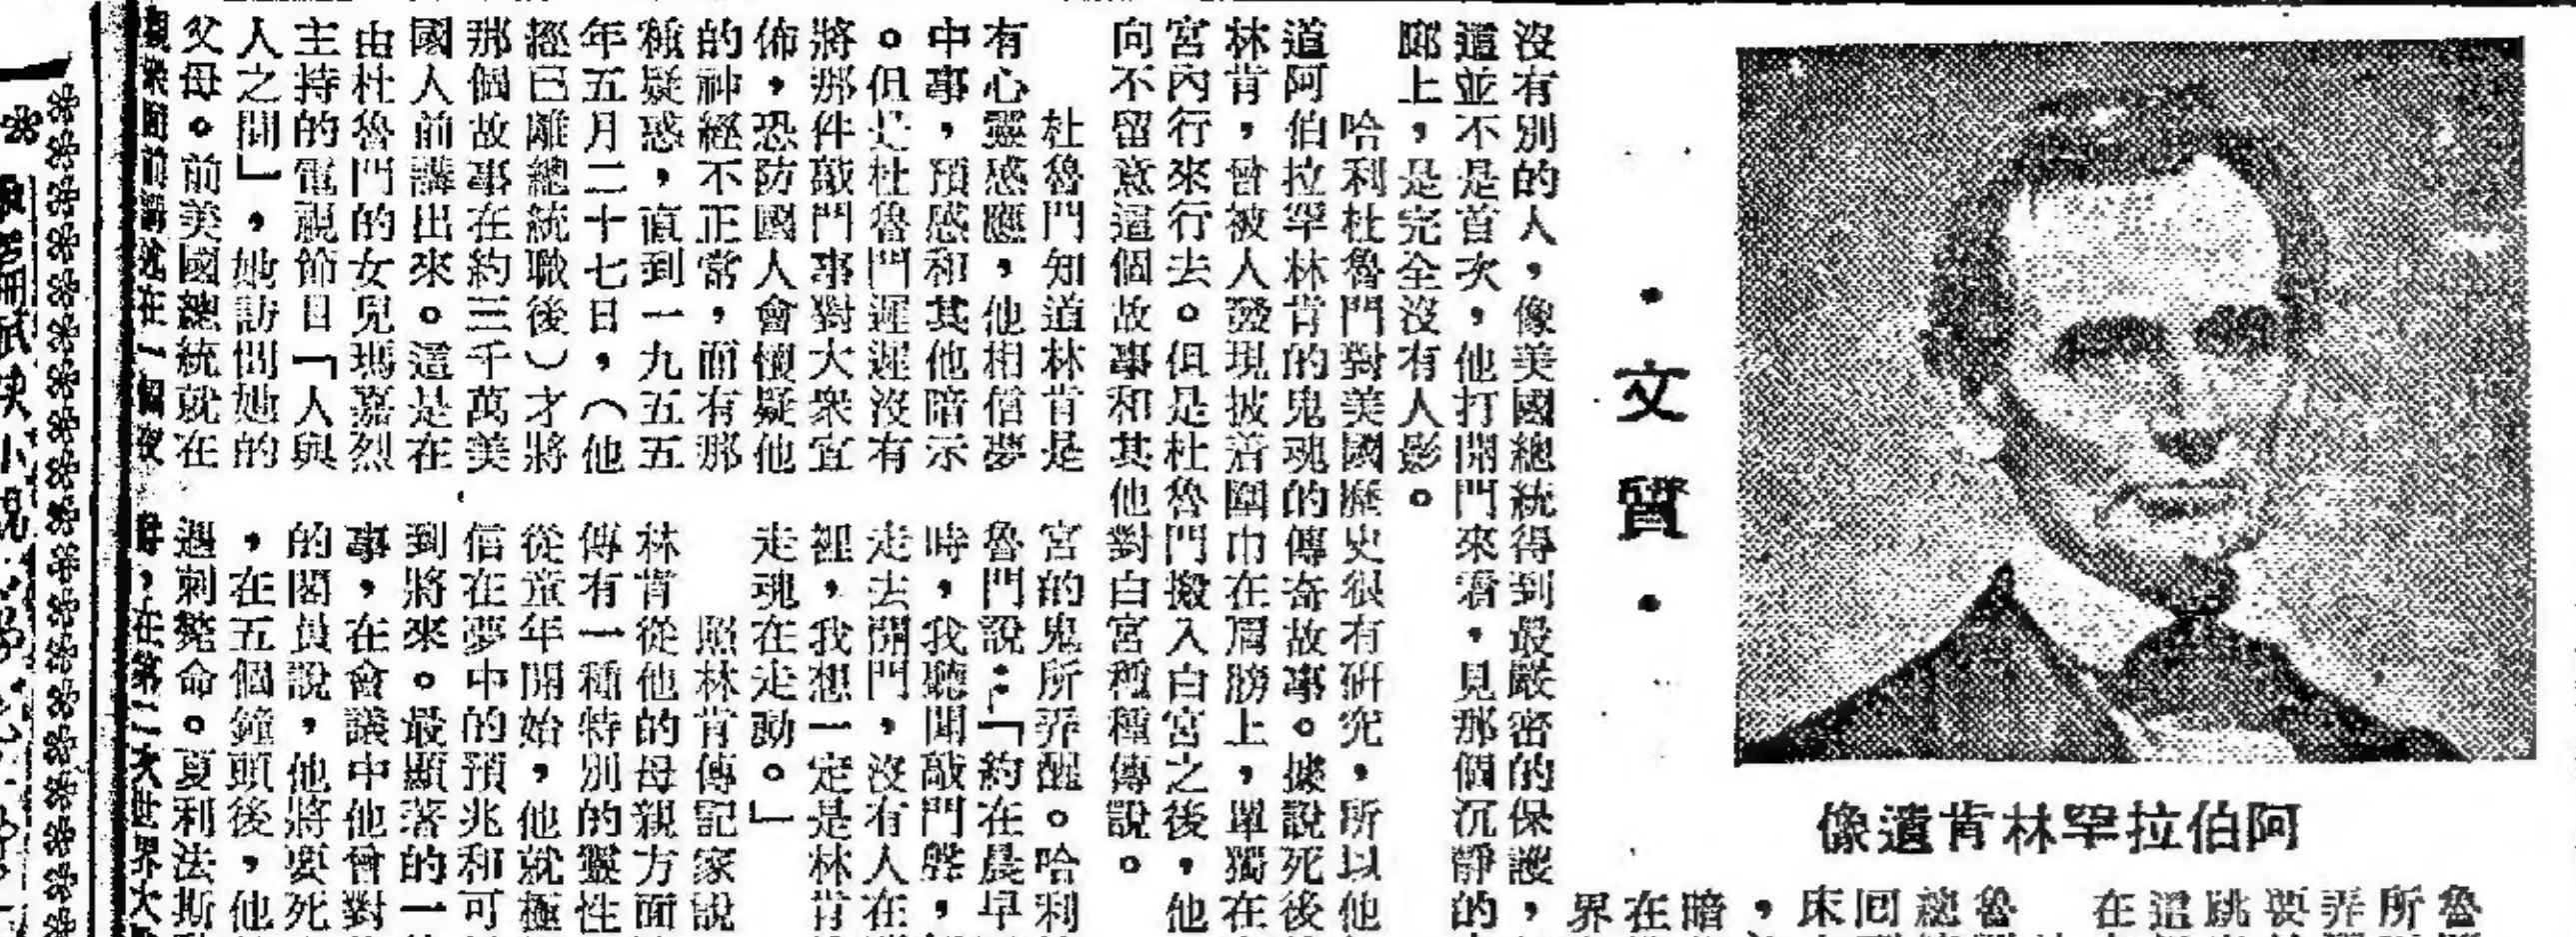 阿伯拉罕林肯遺像
·文質·
魯
所
弄
要
跳
這
在
魯
總
回
床
，
暗
在
界
沒有別的人，像美國總統得到最嚴密的保護，
這並不是首次，他打開門來看，見那個沉靜的
廊上，是完全沒有人影。
哈利杜魯門對美國歷史很有研究，所以他
道阿伯拉罕林肯的鬼魂的傳奇故事。據說死後
林肯，曾被人發現披着圍巾在肩膀上，單獨在
宮內行來行去。但是杜魯門搬入白宮之後，他
向不留意這個故事和其他對白宮種種傳說。
杜魯門知道林肯是
有心靈感應，他相信夢
中事，預感和其他暗示
。但是杜魯門遲遲沒有
將那件敲門事對大衆宣
佈，恐防國人會懷疑他
的神經不正常，而有那
種疑惑，直到一九五五
年五月二十七日，（他
經已離總統職後）才將
那個故事在約三千萬美
國人前講出來。這是在
由杜魯門的女兒瑪嘉烈
主持的電視節目「人與
人之間」，她訪問她的
父母。前美國總統就在
宮的鬼所弄醒。哈利
魯門說：「約在晨早
時，我聽聞敲門聲，
走去開門，沒有人在
裡，我想一定是林肯
走魂在走動。」
照林肯傳記家說
林肯從他的母親方面
傳有一種特別的靈性
從童年開始，他就極
信在夢中的預兆和可
到將來。最顯著的一
事，在會議中他曾對
的閣員說，他將要死
，在五個鐘頭後，他
遇刺斃命。夏利法斯
，在第二次世界大